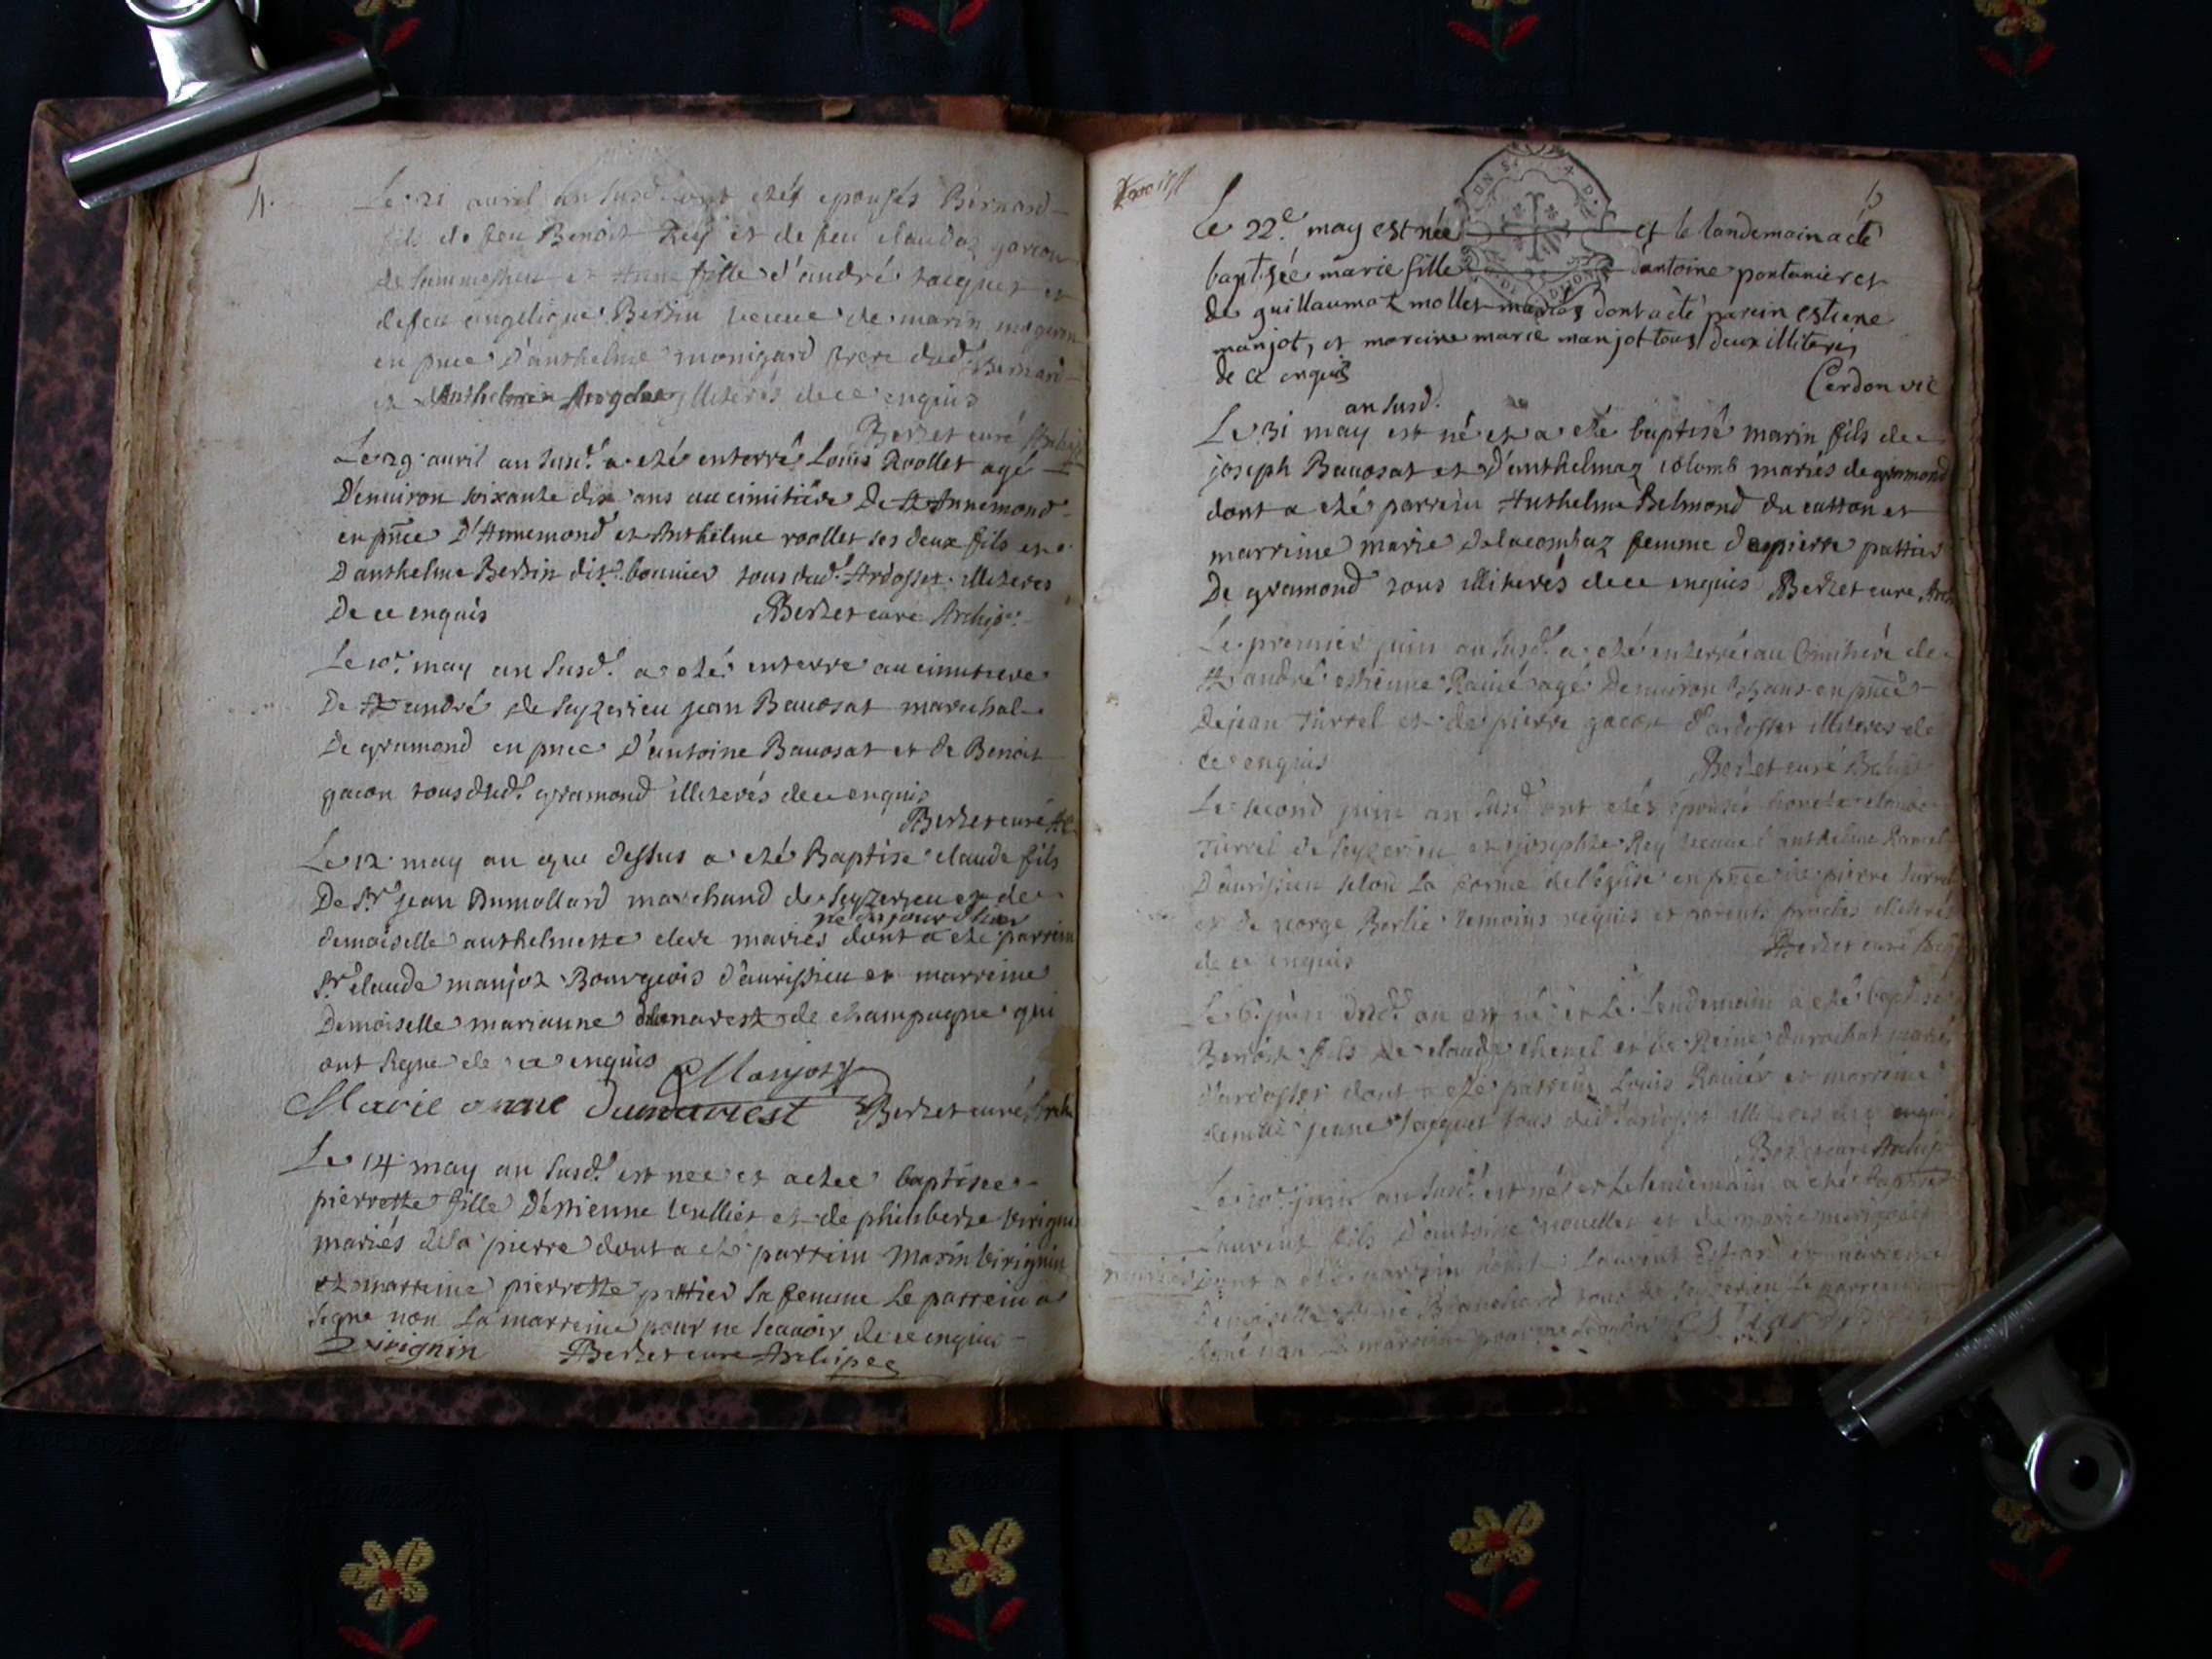 4.
Le 21 avril an susd. ont etés epousés Bernard
fils de feu Benoit Rey et de feu claudaz garcon
et Anne fille d'andré Jacquet et
de feu angelique Bertin veuve de marin
en pnce d'anthelme monigard frere dud. Bernard
et illiterés de ce enquis
Berzet curé
Le 29 avril an susd. a eté enterré Louis Roollet agé
D'environ soixante dix ans au cimitière De St Annemond
en pnce D'Annemond et Anthelme roollet ses deux fils et
D'anthelme Bertin dit bonnier tous dud. Ardosset illiteres
De ce enquis Berzet cure Archip.
Le 10e may an susd. a eté enterre au cimitiere
De St andré de seyzerieu jean Bavosat marechal
De gramond en pnce D'antoine Bavosat et de Benoit
gacon tous dud. gramond illiterés de ce enquis
Berzet curé Ar
Le 12 may an que dessus a eté Baptise claude fils
De Sr. jean Dumollard marchand de seyzerieu et de
né du jour d'hier
demoiselle anthelmette clerc mariés dont a eté parrein
Sr claude manjot Bourgeois d'aurissieu et marreine
Demoiselle marianne dumarest de champagne qui
ont signe de ce enquis Manjot
Marie anne dumarest Berzet curé Arch
Le 14 may an susd. est nee et a etee baptisee
pierrette fille D'etienne vulliet et de philiberte virignin
mariés de la pierre dont a eté parrein Marin virignin
et marreine pierrette pattier sa femme Le parrein a
signe non La marreine pour ne scavoir de ce enquise
Virignin Berzet cure Archipre
5
Le 22e. may est née et le landemain a eté
baptisée marie fille d'antoine pontanier et
de guillaumaz mollet mariés dont a eté parein estiene
manjot, et mareine marie manjot tous deux illiterés
de ce enquis Cerdon vic
an susd.
Le 31 may est né et a eté baptisé marin fils de
joseph Bavosat et d'anthelmaz colomb mariés de gramond
dont a eté parrein Anthelme Belmond du catton et
marrine marie delacombaz femme de pierre pattier
De gramond tous illiterés de ce enquis Berzet cure Arch
Le premier juin an susd. a eté enterré au Cimitière de
St andré estienne Ravié agé D'environ ans en pnce
De jean Turrel et de pierre gacon d'ardosset illiteres de
ce enquis Berzet curé Archip
Le second juin an susd. ont etés epousés honete claude
Turrel de seyzerieu et josephte Rey veuve d'anthelme
D'aurissieu selon La forme de l'eglise en pnce de pierre turrel
et de george Berlie temoins requis et parents proches illiterés
de ce enquis Berzet curé Archip
Le 6 juin dud. an est né et Le Lendemain a eté baptisé
Benoit fils de claude chenel et de Reine durochat mariés
d'ardosset dont a eté parrein Louis Ravier et marreine
jeune Jacquet tous dud. ardosset illiteres de ce enquis
Berzet cure Archip
Le 10e juin an susd. est né et le lendemain a eté Baptisé
Laurent fils D'antoine nouellet et de marie
mariés dont a eté parrein Laurent Estiard et marreine
Demoiselle Blanchard tous de seyzerieu Le parrein
signé non La marreine pour ne scavoir Estiard